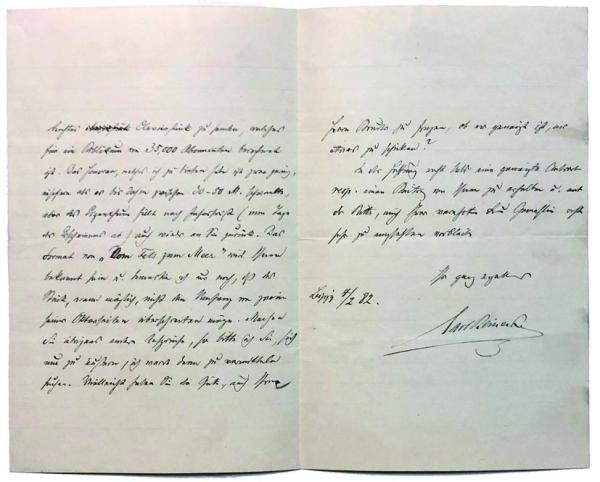 leichtes Clavierstück zu senden, welches
für ein Publikum von 35,000 Abonnenten berechnet
ist. Das Honorar, welches ich zu bieten habe ist zwar gering,
indem als es bis dahin zwischen 30-50 M. schwankte,
aber das Eigenthum fällt nach Jahresfrist (vom Tage
des Erscheinens ab) auch wieder an Sie zurück. Das
Format von "Vom Fels zum Meer" wird Ihnen
bekannt sein u. bemerke ich nur noch, daß das
Stück, wenn möglich, nicht den Umfang von zweien
seiner Octavseiten überschreiten möge. Machen
Sie übrigens andere Ansprüche, so bitte ich Sie, sich
nur zu äußern, ich werde dann zu vermitteln
suchen. Vielleicht haben Sie die Güte, auch Ihren
Herrn Bruder zu fragen, ob er geneigt ist, mir
etwas zu schicken?
In der Hoffnung recht bald eine geneigte Antwort
resp. einen Beitrag von Ihnen zu erhalten u. mit
der Bitte, mich Ihrer verehrten Frau Gemahlin recht
sehr zu empfehlen verbleibe
Ihr ganz ergebener
Leipzig 4/2 82.
Carl Reinecke